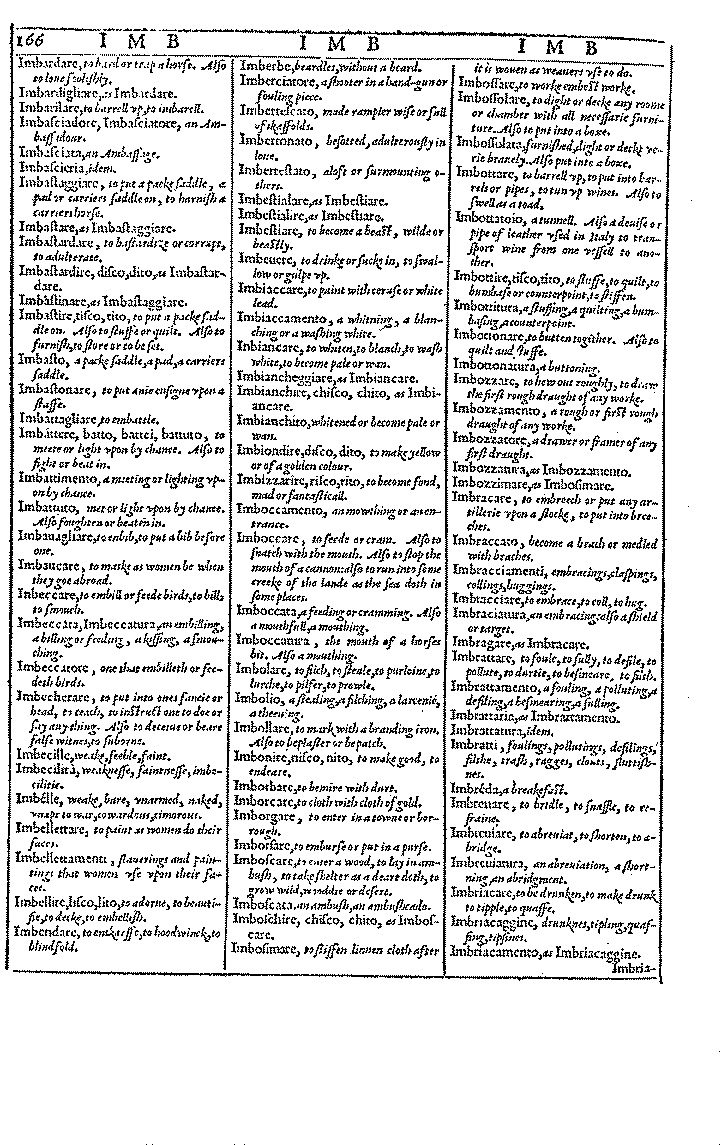 166 I M B I M B I M B
Imbardare, to bard or trap a horse. Also
to loue foolishly.
Imbardigliare, as Imbardare.
Imbarilare, to barrell vp, to imbarell.
Imbasciadore, Imbasciatore, an Am-
bassadour.
Imbasciata, an Ambassage.
Imbascieria, idem.
Imbastaggiare, to put a packe saddle, a
pad or carriers saddle on, to harnish a
carriers horse.
Imbastare, as Imbastaggiare.
Imbastardare, to bastardize or corrupt,
to adulterate.
Imbastardire, disco, dito, as Imbastar-
dare.
Imbastinare, as Imbastaggiare.
Imbastire, tisco, tito, to put a packe sad-
dle on. Also to stuffe or quilt. Also to
furnish, to store or to beset.
Imbasto, a packe saddle, a pad, a carriers
saddle.
Imbastonare, to put anie ensigne vpon a
staffe.
Imbattagliare, to embattle.
Imbattere, batto, battei, battuto, to
meete or light vpon by chance. Also to
fight or beat in.
Imbattimento, a meeting or lighting vp-
on by chance.
Imbattuto, met or light vpon by chance.
Also foughten or beaten in.
Imbauagliare, to enbib, to put a bib before
one.
Imbaucare, to maske as women be when
they goe abroad.
Inbeccare, to embill or feede birds, to bill,
to smouch.
Imbeccata, Imbeccatura, an embilling,
a billing or feeding, a kissing, a smou-
ching.
Imbeccatore, one that embilleth or fee-
deth birds.
Imbecherare, to put into ones fancie or
head, to teach, to instruct one to doe or
say any thing. Also to deceiue or beare
false witnes, to suborne.
Imbecille, weake, feeble, faint.
Imbecilità, weaknesse, faintnesse, imbe-
cilitie.
Imbélle, weake, bare, vnarmed, naked,
vnapt to war, cowardous, timorous.
Imbellettare, to paint as women do their
faces.
Imbellettamenti, slauerings and pain-
tings that women vse vpon their fa-
ces.
Imbellire, lisco, lito, to adorne, to beauti-
fie, to decke, to embellish.
Imbendare, to enkerffe, to hoodwinck, to
blindfold.
Imberbe, beardles, without a beard.
Imberciatore, a shooter in a hand-gun or
fouling piece.
Imbertescato, made rampier wise or full
of skaffolds.
Imbertonato, besotted, adulterously in
loue.
Imbertestato, aloft or surmounting o-
thers.
Imbestialare, as Imbestiare.
Imbestialire, as Imbestiare.
Imbestiare, to become a beast, wilde or
beastly.
Imbeuere, to drinke or sucke in, to swal-
low or gulpe vp.
Imbiaccare, to paint with ceruse or white
lead.
Imbiaccamento, a whitning, a blan-
ching or a washing white.
Inbiancare, to whiten, to blanch, to wash
white, to become pale or wan.
Imbiancheggiare, as Imbiancare.
Imbianchire, chisco, chito, as Imbi-
ancare.
Imbianchito, whitened or become pale or
wan.
Imbiondire, disco, dito, to make yellow
or of a golden colour.
Imbizzarire, risco, rito, to become fond,
mad or fantasticall.
Imboccamento, an mouthing or an en-
trance.
Imboccare, to feede or cram. Also to
snatch with the mouth. Also to stop the
mouth of a cannon: also to run into some
creeke of the lande as the sea doth in
some places.
Imboccata, a feeding or cramming. Also
a mouthfull, a mouthing.
Imboccatura, the mouth of a horses
bit. Also a mouthing.
Imbolare, to filch, to steale, to purloine, to
lurche, to pilfer, to prowle.
Imbolio, a stealing, a filching, a larcenie,
a theeuing.
Imbollare, to mark with a branding iron.
Also to beplaster or be patch.
Imbonire, nisco, nito, to make good, to
endeare.
Imbortare, to bemire with durt.
Imborcare, to cloth with cloth of gold.
Imborgare, to enter in a towne or bor-
rough.
Imborsare, to emburse or put in a purse.
Imboscare, to enter a wood, to lay in am-
bush, to take shelter as a deare doth, to
grow wild, woddie or desert.
Imboscata, an ambush, an ambuscado.
Imboschire, chisco, chito, as Imbos-
care.
Imbosimare, to stiffen linnen cloth after
it is wouen as weauers vse to do.
Imbossare, to worke embost worke.
Imbossolare, to dight or decke any roome
or chamber with all necessarie furni-
ture. Also to put into a boxe.
Imbossolata, furnished, dight or deckt ve-
rie brauely. Also put into a boxe.
Imbottare, to barrell vp, to put into bar-
rels or pipes, to tun vp wines. Also to
swell as a toad.
Imbottatoio, a tunnell. Also a deuise or
pipe of leather vsed in Italy to tran-
sport wine from one vessell to ano-
ther.
Imbottire, tisco, tito, to stuffe, to quilt, to
bumbase or counterpoint, to stiffen.
Imbottitura, a stuffing, a quilting, a bum-
basing, a counterpoint.
Imbottonare, to button together. Also to
quilt and stuffe.
Imbottonatura, a buttoning.
Imbozzare, to hew out roughly, to draw
the first rough draught of any worke.
Imbozzamento, a rough or first rough
draught of any worke.
Imbozzatore, a drawer or framer of any
first draught.
Imbozzatura, as Imbozzamento.
Imbozzimare, as Imbosimare.
Imbracare, to embreech or put any ar-
tillerie vpon a stocke, to put into bree-
ches.
Imbraccato, become a brach or medled
with braches.
Imbracciamenti, embracings, claspings,
collings, huggings.
Imbracciare, to embrace, to coll, to hug.
Imbracciatura, an embracing: also a shield
or target.
Imbragare, as Imbracare.
Imbrattare, to foule, to sully, to defile, to
pollute, to durtie, to besmeare, to filth.
Imbrattamento, a fouling, a polluting, a
defiling, a besmearing, a sulling.
Imbrattaria, as Imbrattamento.
Imbrattatura, idem.
Imbratti, foulings, pollutings, defilings,
filthe, trash, ragges, clouts, sluttish-
nes.
Imbréda, a breakefast.
Imbrenare, to bridle, to snaffle, to re-
fraine.
Imbreuiare, to abreuiat, to shorton, to a-
bridge.
Imbreuiatura, an abreuiation, a short-
ning, an abridgment.
Imbriacare, to be drunken, to make drunk
to tipple, to quaffe.
Imbriacaggine, drunknes, tipling, quaf-
fing, tipsines.
Imbriacamento, as Imbriacaggine.
Imbria-